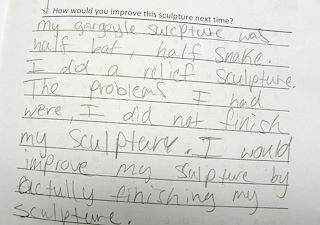 How would you improve this sculpture next time?
my gargoyle surcpture was
half bat, half snake.
I did a relief sculpture.
The problems I had
were, I did not finish
my sculpture. I would
improve my sulpture by
actully finishing my
sculpture.